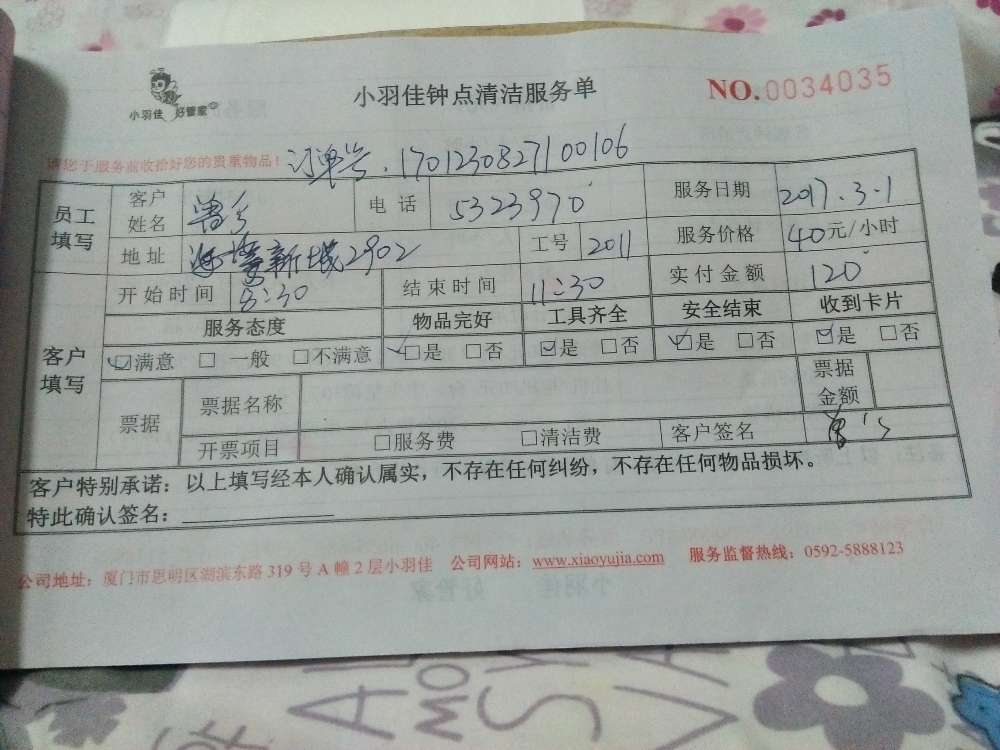 小羽佳 好管家
小羽佳钟点清洁服务单
NO.0034035
请您于服务前收拾好您的贵重物品!
订单号.1701230827100106
员工填写 客户姓名 曾 电话 5323970 服务日期 2017.3.1
地址 新城2902 工号 2011 服务价格 40元/小时
开始时间 8:30 结束时间 11:30 实付金额 120
客户填写 服务态度 物品完好 工具齐全 安全结束 收到卡片
☑满意 □一般 □不满意 ☑是 □否 ☑是 □否 ☑是 □否 ☑是 □否
票据 票据名称 票据金额
开票项目 □服务费 □清洁费 客户签名 曾
客户特别承诺:以上填写经本人确认属实,不存在任何纠纷,不存在任何物品损坏。
特此确认签名:
公司地址:厦门市思明区湖滨东路 319 号 A 幢 2 层小羽佳 公司网站:www.xiaoyujia.com 服务监督热线:0592-5888123
A
MO
S
VA